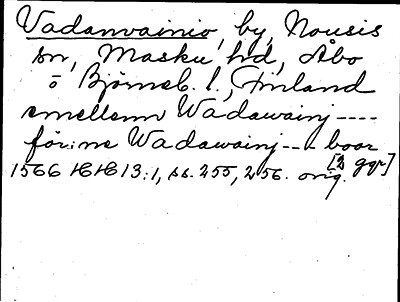 Vadanvainio, by, Nousis
sn, Masku hd, Åbo
o Björneb. l., Finland
emellenn Wadawainj ----
för:ne Wadawainj --- boar
[2 ggr]
1566 HH 13:1, ss. 255, 256. orig.